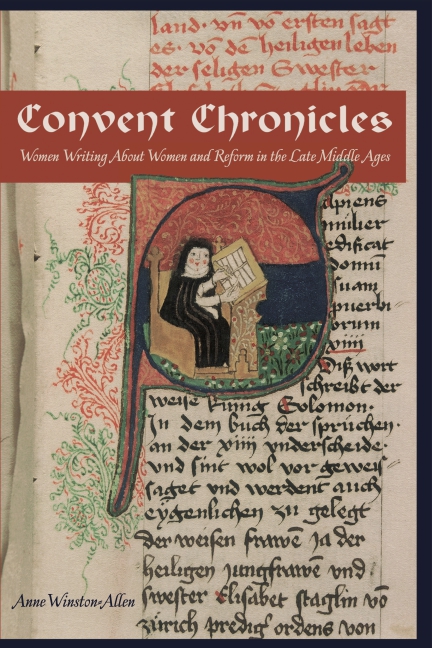 land · vn̄ vō ersten sagt
es · vō dē heiligen leben
der seligen Swester
Convent Chronicles
Women Writing About Women and Reform in the Late Middle Ages
apiens
mulier
edificat
domū
suam
puerbi
orum
xiiij
Diß wort
schreibt der
weise kunig Solomon ·
In dem buch der sprüchen ·
an der xiiij vnderscheide ·
vnd sint wol vor
saget vnd werdent auch
eygenlichen zu gelegt
der weisen frawē ja der
heiligen jungfrawē vnd
swester Elisabet staglin vō
zürich predig ordens von
Anne Winston-Allen